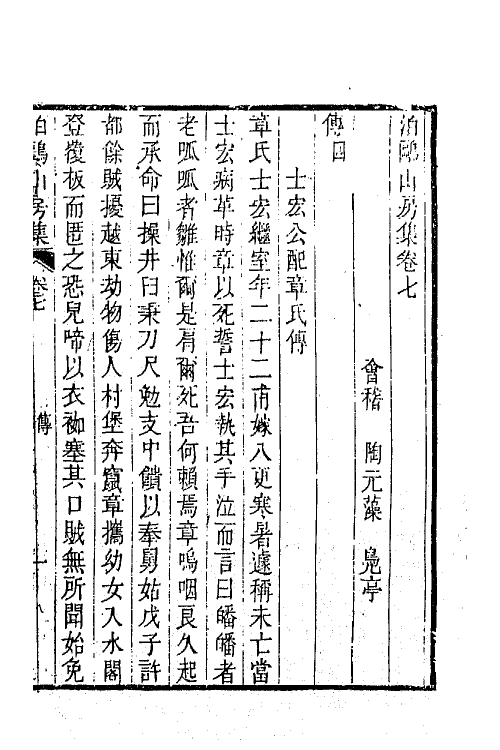 泊鷗山房集卷七
會稽　陶元藻　鳧亭
傳四
士宏公配章氏傳
章氏士宏繼室年二十二甫嫁八更寒暑遽稱未亡當
士宏病革時章以死誓士宏執其手泣而言曰皤皤者
老呱呱者雛惟爾是肩爾死吾何賴焉章嗚咽良久起
而承命曰操井臼秉刀尺勉支中饋以奉舅姑戊子許
都餘賊擾越東劫物傷人村堡奔竄章攜幼女入水閣
登復板而匿之恐兒啼以衣衪塞其口賊無所聞始免
泊鷗山房集　卷七　傳　一